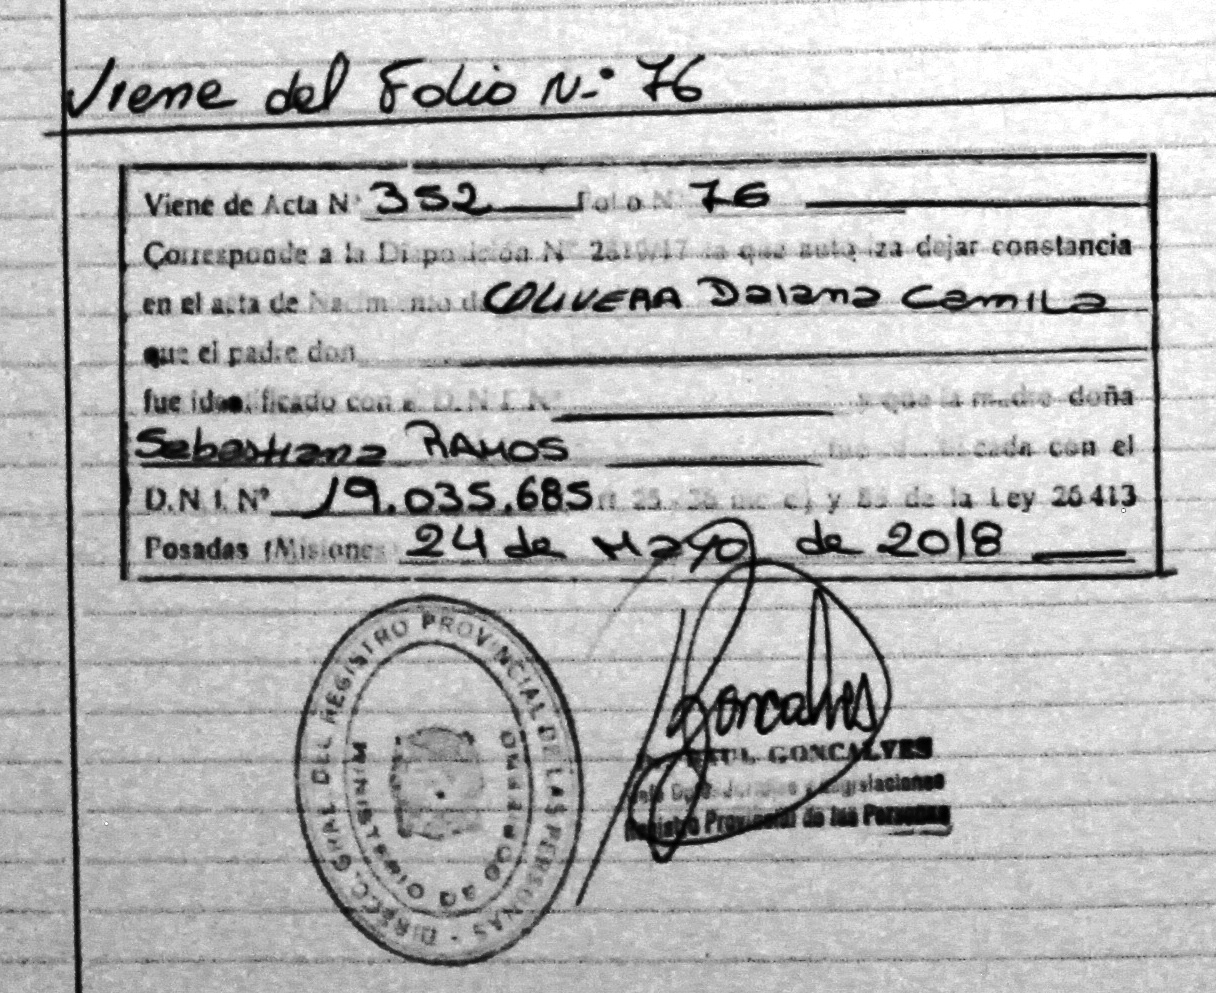 Viene del Folio N-° 76
Viene de Acta N° 352 Folio N° 76
Corresponde a la Disposición N° 2819/17 la que autoriza dejar constancia
en el acta de Nacimiento de OLIVERA Daiana Camila
que el padre don
fue identificado con el D.N.I. N° y que la madre doña
Sebastiana RAMOS con el
D.N.I. N° 19.035.685 y 85 de la Ley 26413
Posadas (Misiones) 24 de Mayo de 2018
DIRECC. GRAL. DEL REGISTRO PROVINCIAL DE LAS PERSONAS
MINISTERIO DE GOBIERNO
Goncalves
RAUL GONCALVES
Registro Provincial de las Personas